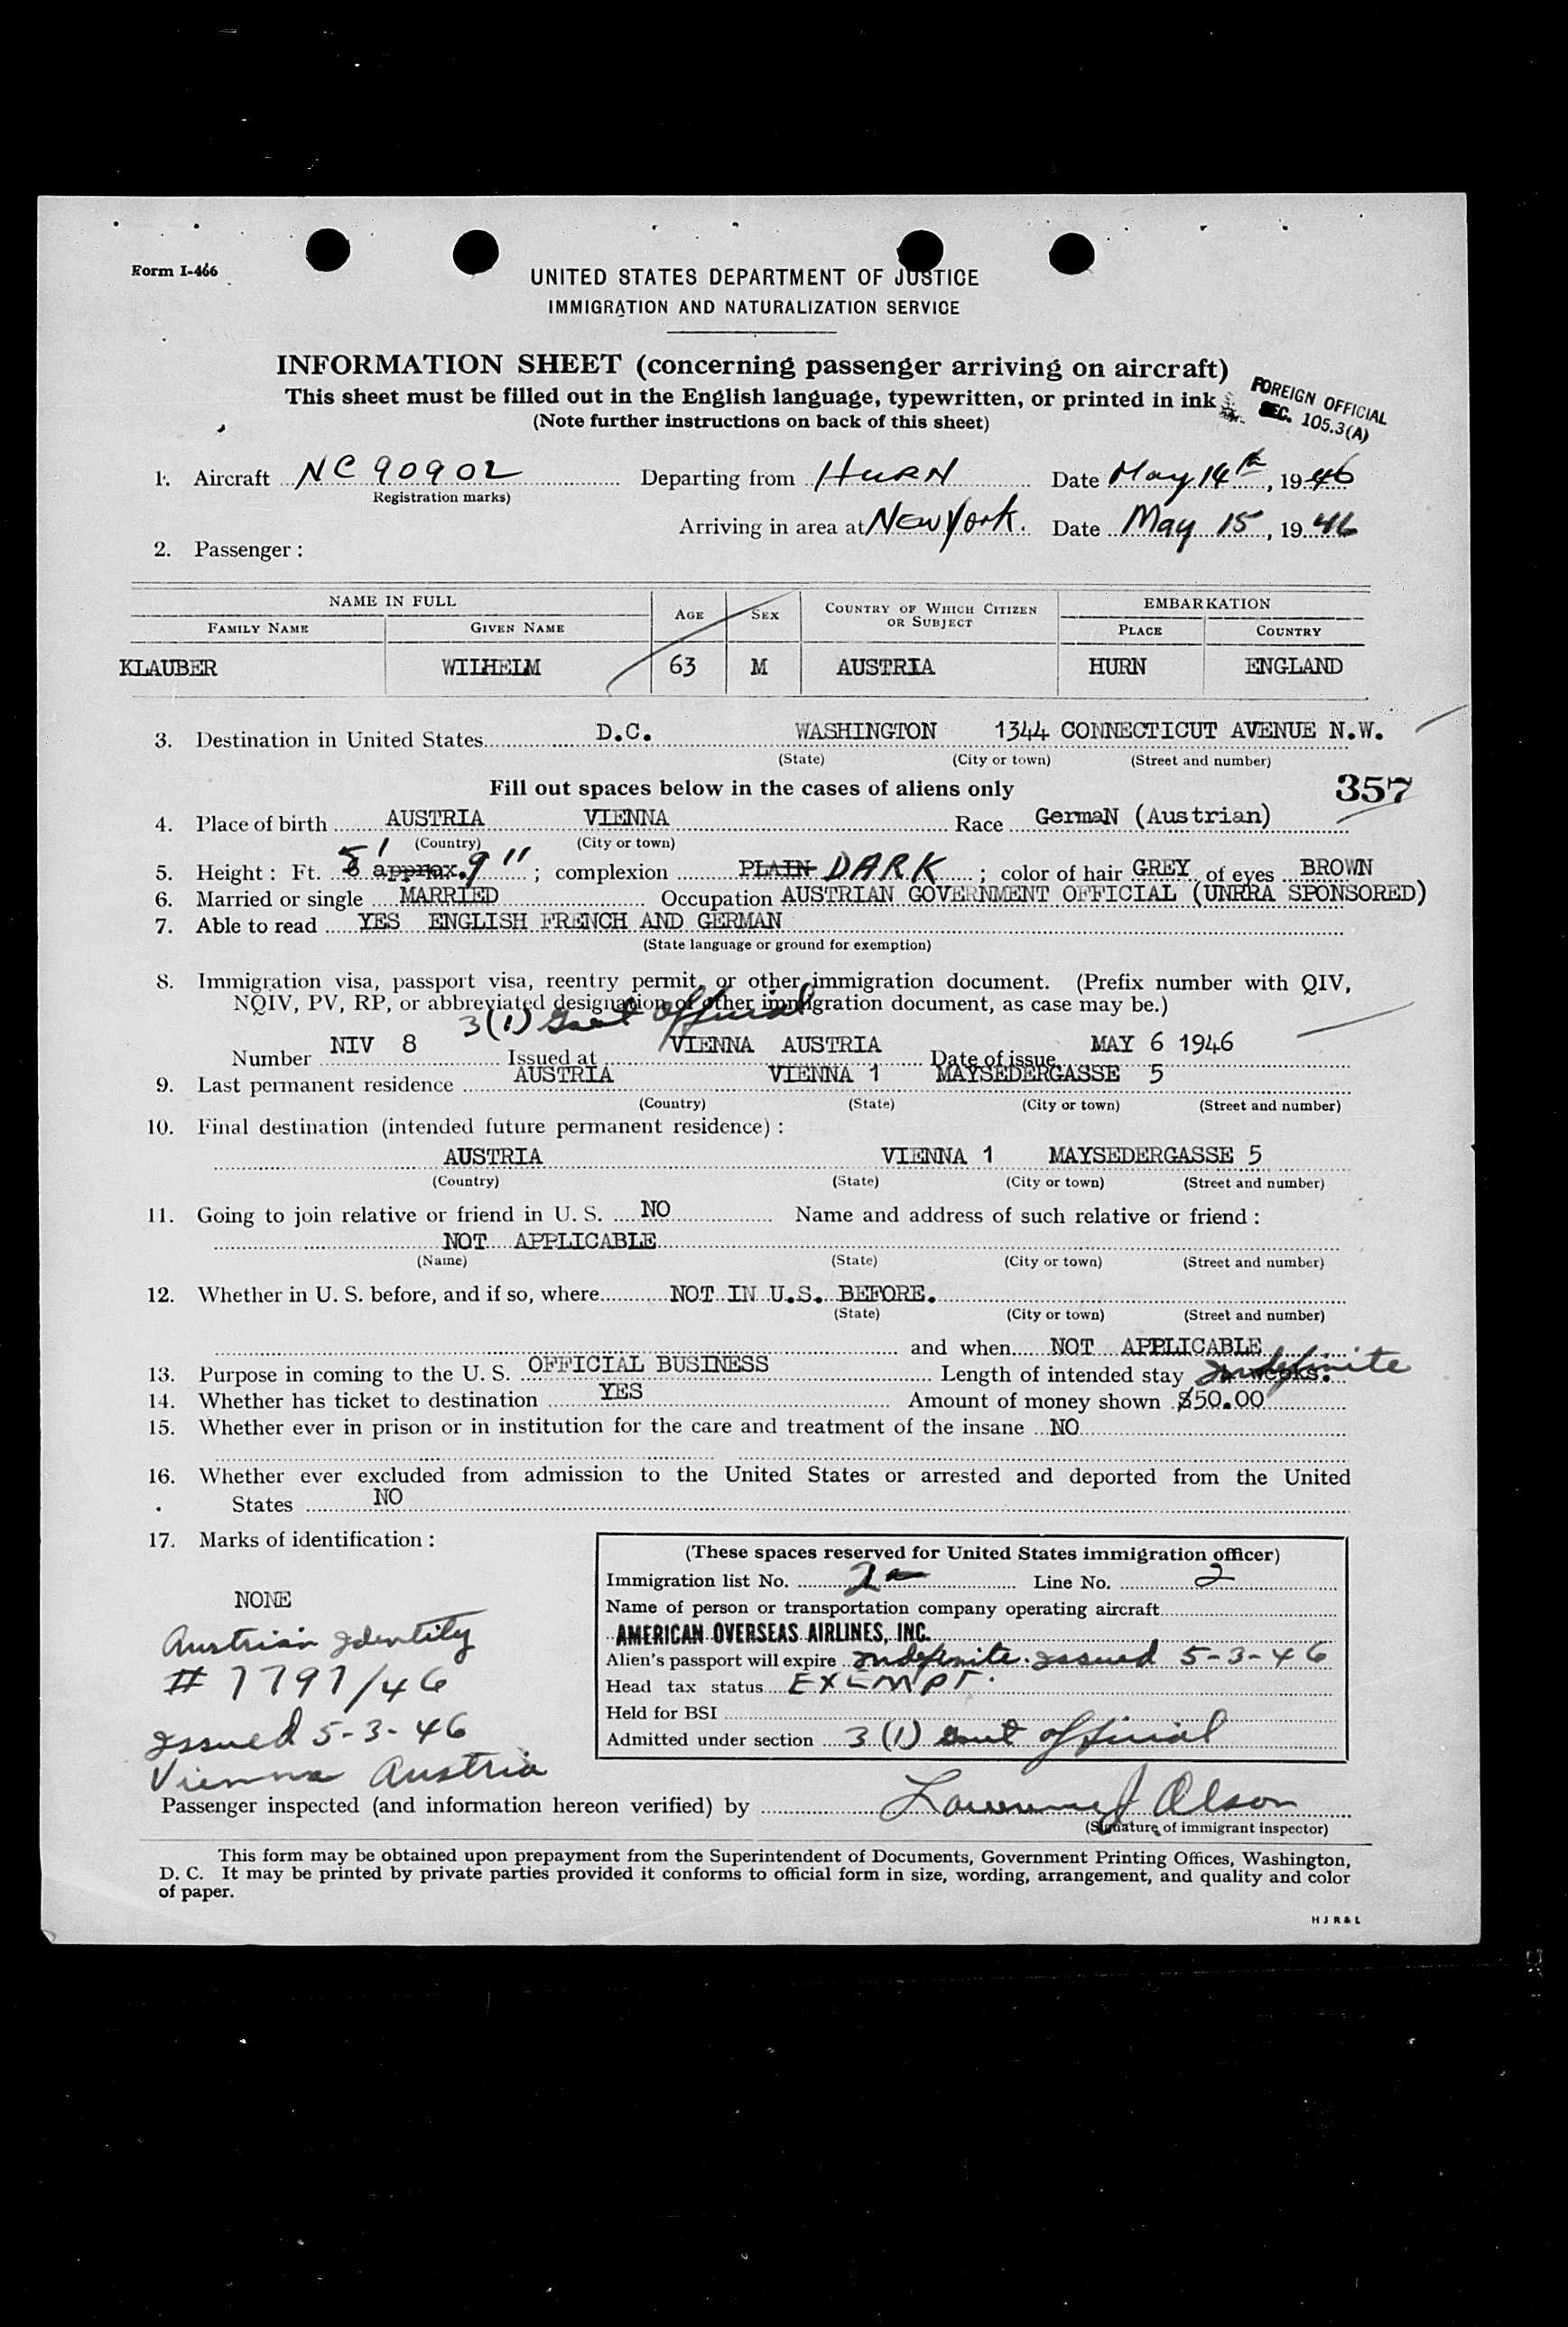 Form I-466
UNITED STATES DEPARTMENT OF JUSTICE
IMMIGRATION AND NATURALIZATION SERVICE
INFORMATION SHEET (concerning passenger arriving on aircraft)
This sheet must be filled out in the English language, typewritten, or printed in ink
(Note further instructions on back of this sheet)
FOREIGN OFFICIAL
SEC. 105.3(A)
1. Aircraft NC 90902 Departing from HURN Date May 14th, 1946
(Registration marks)
Arriving in area at New York. Date May 15, 1946
2. Passenger :
NAME IN FULL AGE SEX COUNTRY OF WHICH CITIZEN OR SUBJECT EMBARKATION
FAMILY NAME GIVEN NAME PLACE COUNTRY
KLAUBER WILHELM 63 M AUSTRIA HURN ENGLAND
3. Destination in United States D.C. WASHINGTON 1344 CONNECTICUT AVENUE N.W.
(State) (City or town) (Street and number)
Fill out spaces below in the cases of aliens only
357
4. Place of birth AUSTRIA VIENNA Race GermaN (Austrian)
(Country) (City or town)
5. Height : Ft. 5' approx. 9" ; complexion PLAIN DARK ; color of hair GREY of eyes BROWN
6. Married or single MARRIED Occupation AUSTRIAN GOVERNMENT OFFICIAL (UNRRA SPONSORED)
7. Able to read YES ENGLISH FRENCH AND GERMAN
(State language or ground for exemption)
8. Immigration visa, passport visa, reentry permit, or other immigration document. (Prefix number with QIV,
NQIV, PV, RP, or abbreviated designation of other immigration document, as case may be.)
3(1) Govt Official
Number NIV 8 Issued at VIENNA AUSTRIA Date of issue MAY 6 1946
9. Last permanent residence AUSTRIA VIENNA 1 MAYSEDERGASSE 5
(Country) (State) (City or town) (Street and number)
10. Final destination (intended future permanent residence) :
AUSTRIA VIENNA 1 MAYSEDERGASSE 5
(Country) (State) (City or town) (Street and number)
11. Going to join relative or friend in U. S. NO Name and address of such relative or friend :
NOT APPLICABLE
(Name) (State) (City or town) (Street and number)
12. Whether in U. S. before, and if so, where NOT IN U.S. BEFORE.
(State) (City or town) (Street and number)
and when NOT APPLICABLE
13. Purpose in coming to the U. S. OFFICIAL BUSINESS Length of intended stay Indefinite weeks.
14. Whether has ticket to destination YES Amount of money shown $50.00
15. Whether ever in prison or in institution for the care and treatment of the insane NO
16. Whether ever excluded from admission to the United States or arrested and deported from the United
States NO
17. Marks of identification :
NONE
Austrian Identity
# 7797/46
Issued 5-3-46
Vienna Austria
(These spaces reserved for United States immigration officer)
Immigration list No. 2a Line No. 2
Name of person or transportation company operating aircraft
AMERICAN OVERSEAS AIRLINES, INC.
Alien's passport will expire Indefinite. Issued 5-3-46
Head tax status EXEMPT.
Held for BSI
Admitted under section 3 (1) Govt official
Passenger inspected (and information hereon verified) by Lawrence J Olson
(Signature of immigrant inspector)
This form may be obtained upon prepayment from the Superintendent of Documents, Government Printing Offices, Washington,
D. C. It may be printed by private parties provided it conforms to official form in size, wording, arrangement, and quality and color
of paper.
H J R & L